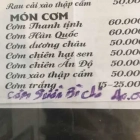 Rau cải xào thập cẩm 50.000
MÓN CƠM
Cơm Thanh tịnh 60.000
Cơm Hàn Quốc 60.000
Cơm dương châu 50.000
Cơm chiên hạt sen 50.000
Cơm chiên Ấn Độ 50.000
Cơm xào thập cẩm 50.000
Cơm trắng 15-25.000
Cơm Sườn Bì Chả